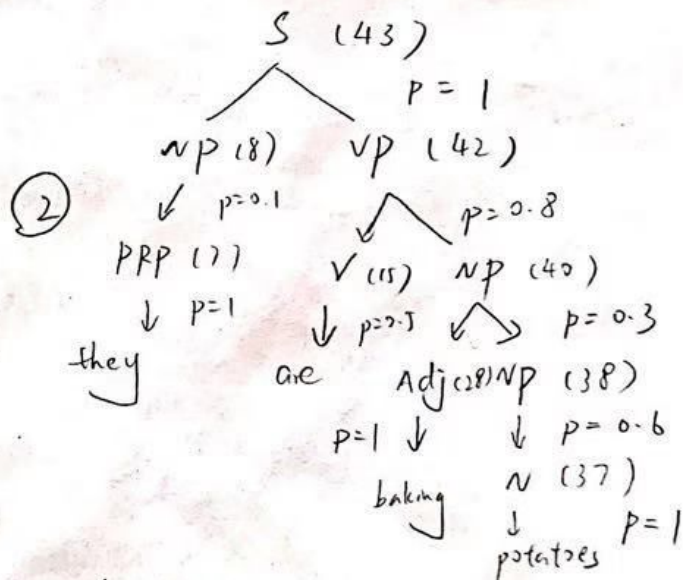 S (43)
p = 1
NP (8) VP (42)
2 p=0.1 p=0.8
PRP (7) V (15) NP (40)
p=1 p=0.5 p=0.3
they are Adj (28) NP (38)
p=1 p=0.6
baking N (37)
p=1
potatoes